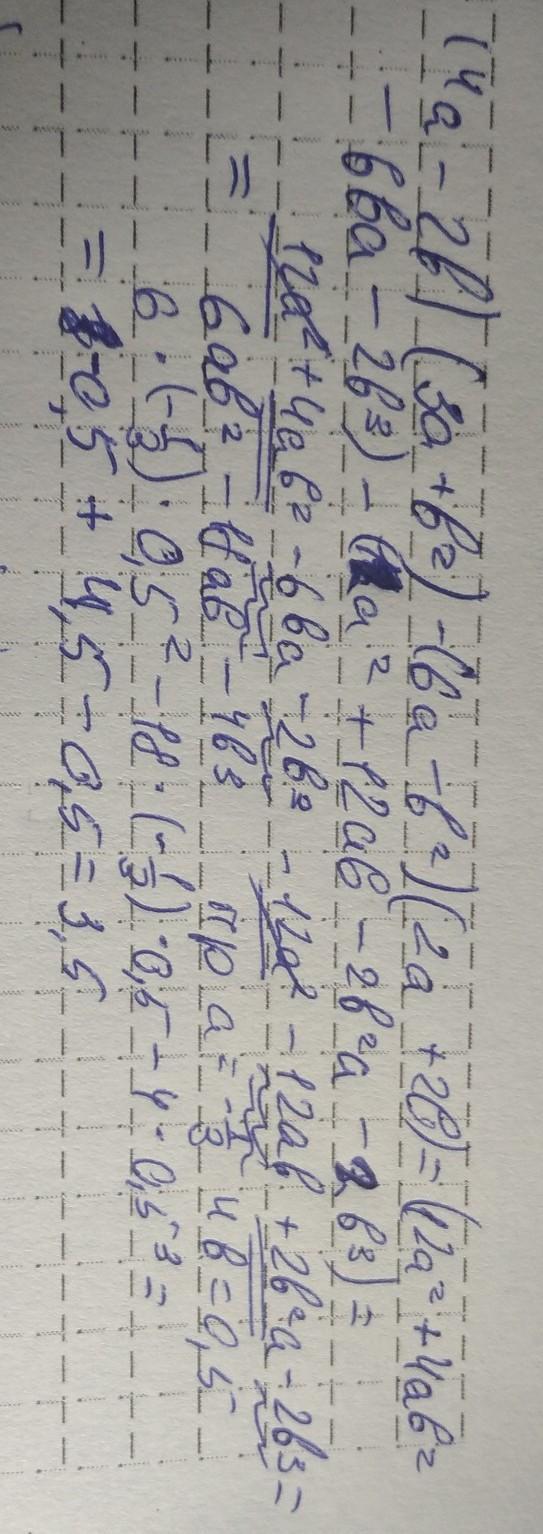 (4a - 2b) (3a + b²) - (6a - b²) (2a + 2b) = (12a² + 4ab² 
- 6ba - 2b³) - (12a² + 12ab - 2b²a - 2b³) =
12a² + 4ab² - 6ba - 2b² - 12a² - 12ab + 2b²a - 2b³ =
= 6ab² - 18ab - 4b³ пр a = -1/3 и b = 0,5
6 · (-1/3) · 0,5² - 18 · (-1/3) · 0,5 - 4 · 0,5³ =
= -0,5 + 4,5 - 0,5 = 3,5